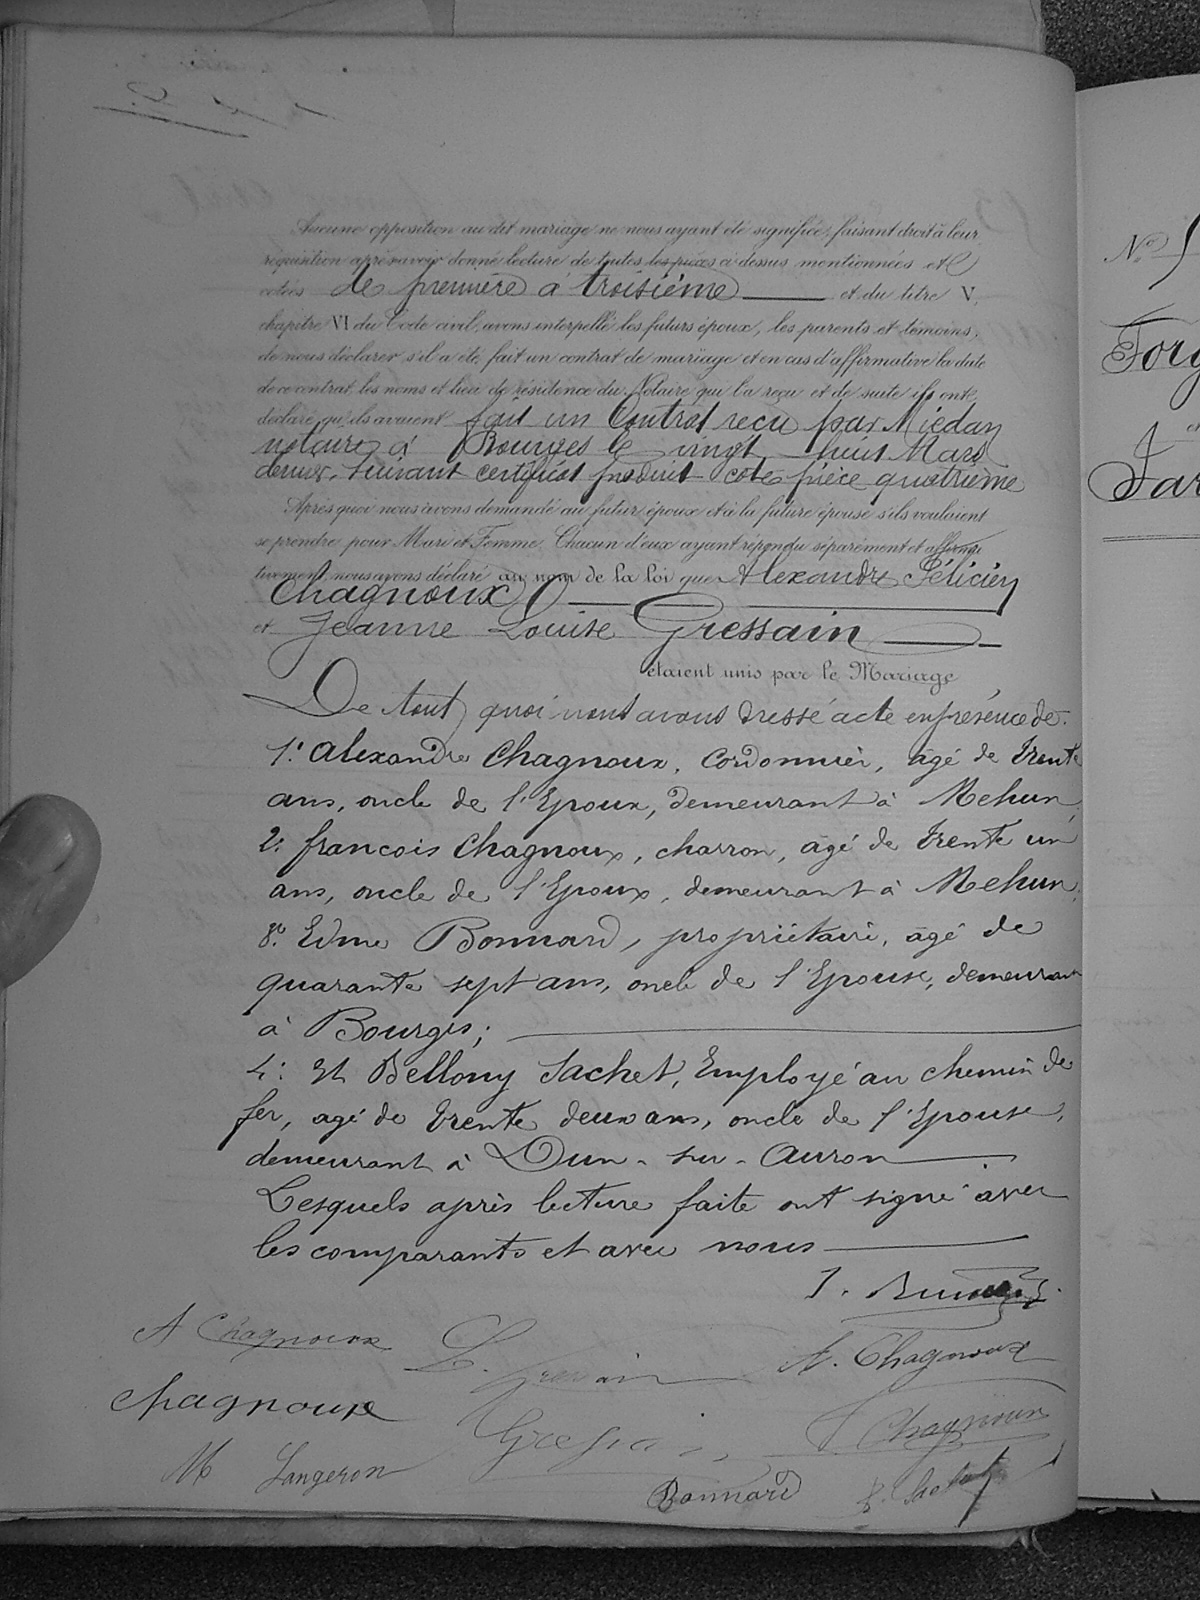 Aucune opposition au dit mariage ne nous ayant été signifiée, faisant droit à leur
réquisition après avoir donné lecture de toutes les pièces ci dessus mentionnées et
cotées de première à troisième et du titre V,
chapitre VI du Code civil, avons interpellé les futurs époux, les parents et témoins,
de nous déclarer s'il a été fait un contrat de mariage et en cas d'affirmative la date
de ce contrat, les noms et lieu de résidence du Notaire qui l'a reçu et de suite ils ont
déclaré qu'ils avaient fait un Contrat reçu par Miédan
notaire à Bourges le vingt huit Mars
dernier, suivant certificat produit coté pièce quatrième
Après quoi nous avons demandé au futur époux et à la future épouse s'ils voulaient
se prendre pour Mari et Femme. Chacun d'eux ayant répondu séparément et affirma
tivement, nous avons déclaré au nom de la loi que Alexandre Félicien
Chagnoux
et Jeanne Louise Gressain
étaient unis par le Mariage
De tout quoi nous avons dressé acte en présence de.
1º. Alexandre Chagnoux, Cordonnier, âgé de trente
ans, oncle de l'Epoux, demeurant à Mehun,
2º. françois Chagnoux, charron, âgé de trente un
ans, oncle de l'Epoux, demeurant à Mehun,
3º. Edme Bonnard, propriétaire, âgé de
quarante sept ans, oncle de l'Epouse, demeurant
à Bourges;
4º. Et Bellony Sachet, Employé au chemin de
fer, agé de trente deux ans, oncle de l'Epouse,
demeurant à Dun-sur-Auron
Lesquels après lecture faite ont signé avec
les comparants et avec nous
A Chagnoux L. Gressain A. Chagnoux
Chagnoux Gressain F Chagnoux
M Langeron Bonnard B. Sachet
Nº
Forg
et
Jar